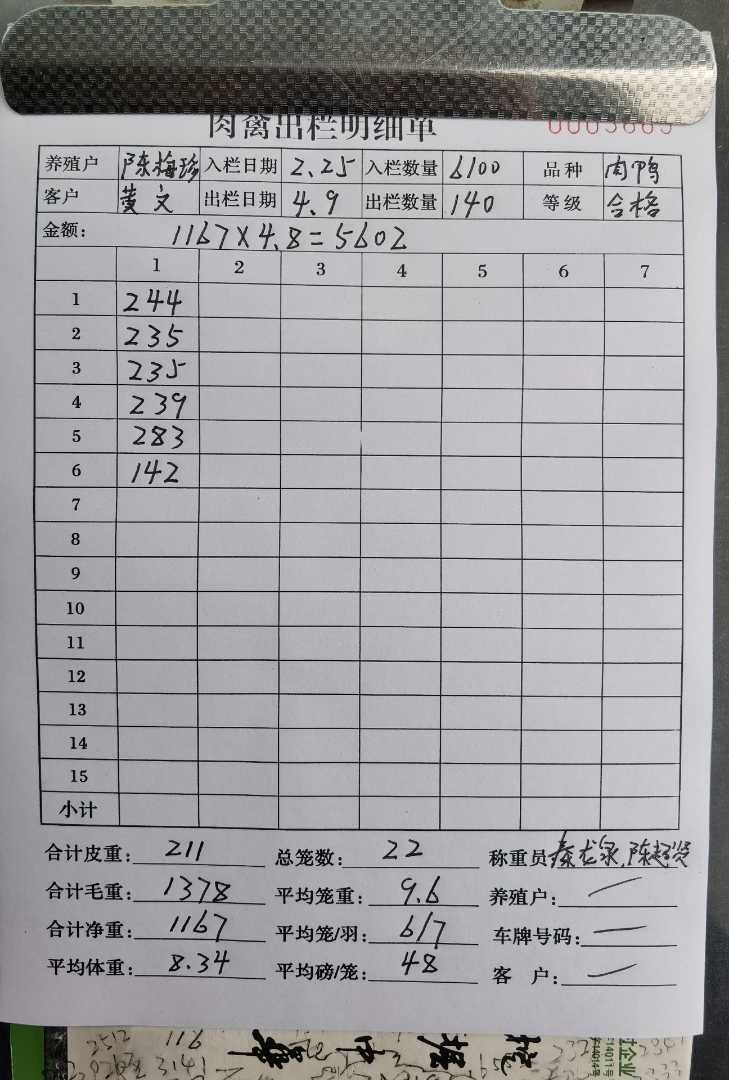 肉禽出栏明细单 0003665
养殖户 陈梅珍 入栏日期 2.25 入栏数量 6100 品种 肉鸭
客户 黄文 出栏日期 4.9 出栏数量 140 等级 合格
金额: 1167×4.8=5602
1 2 3 4 5 6 7
1 244
2 235
3 235
4 239
5 283
6 142
7
8
9
10
11
12
13
14
15
小计
合计皮重: 211 总笼数: 22 称重员 秦龙泉,陈超贤
合计毛重: 1378 平均笼重: 9.6 养殖户: 一
合计净重: 1167 平均笼/羽: 6/7 车牌号码: 一
平均体重: 8.34 平均磅/笼: 48 客户: 一
2512 116
3141